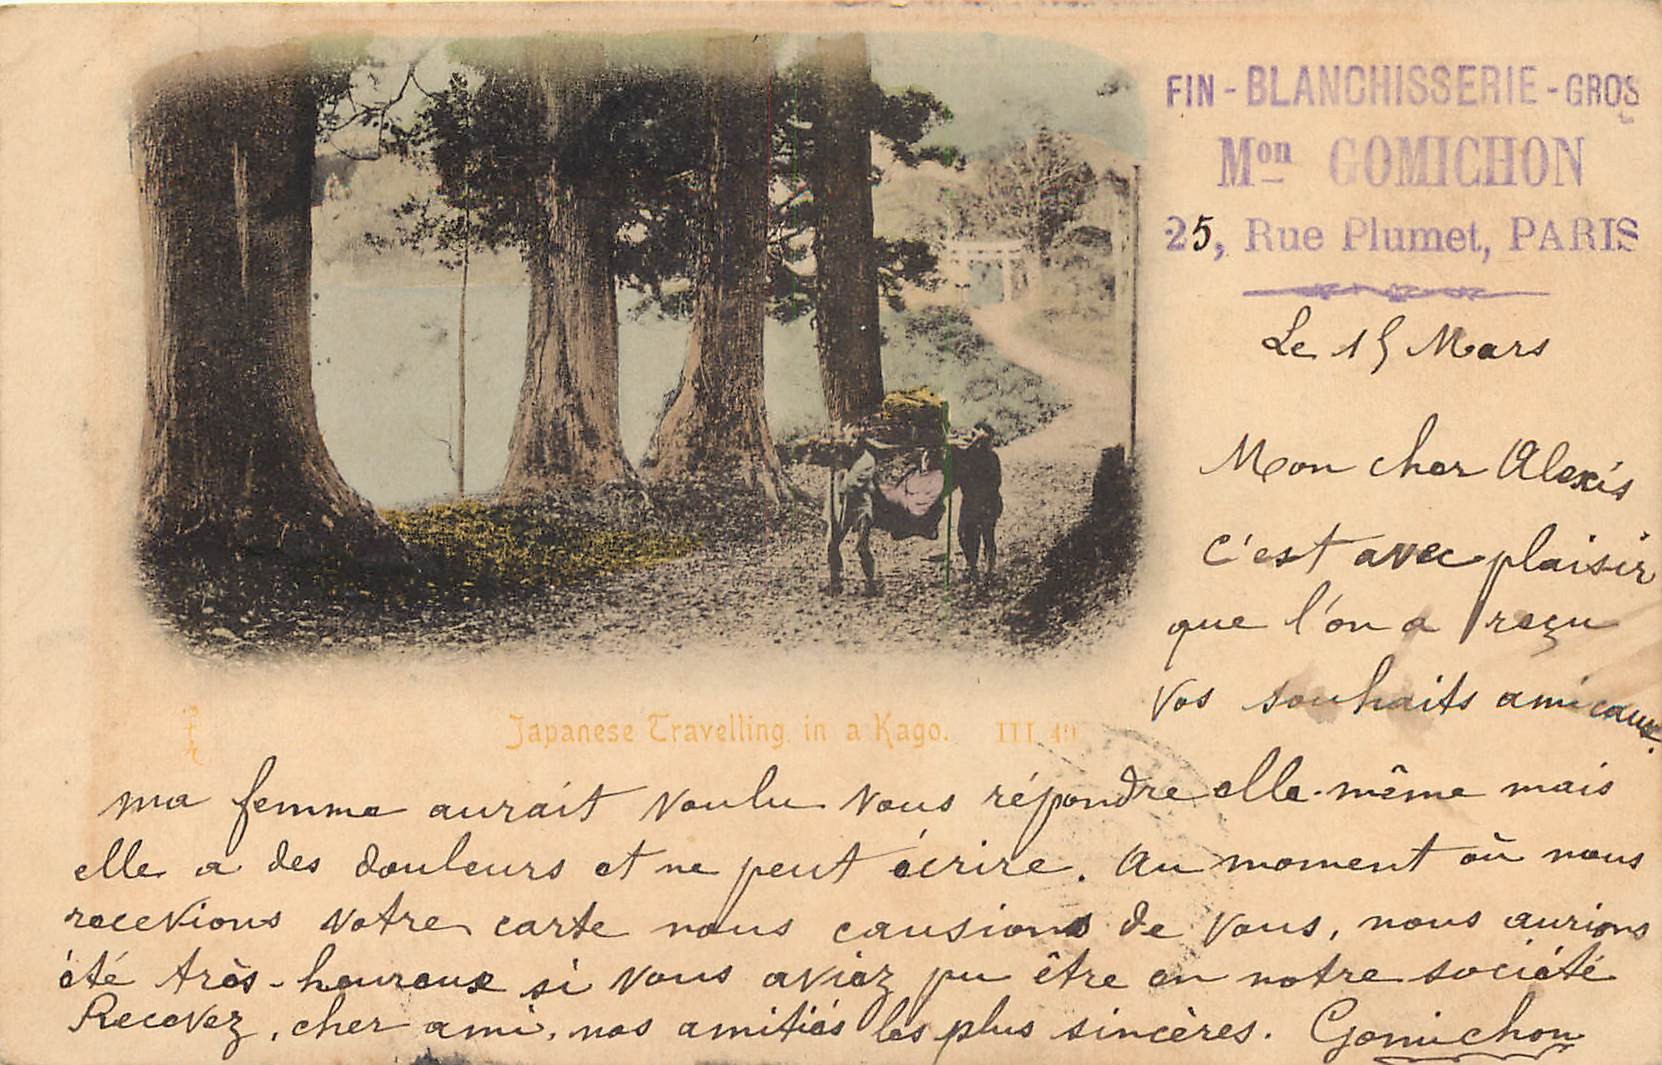 FIN - BLANCHISSERIE - GROS
Mon GOMICHON
25, Rue Plumet, PARIS
Le 15 Mars
Mon cher Alexis
c'est avec plaisir
que l'on a reçu
vos souhaits amicaux.
Japanese Travelling in a Kago. III 49
ma femme aurait voulu vous répondre elle-même mais
elle a des douleurs et ne peut écrire. Au moment où nous
recevions votre carte nous causions de vous, nous aurions
été très-heureux si vous aviez pu être en notre société
Recevez, cher ami, nos amitiés les plus sincères. Gomichon